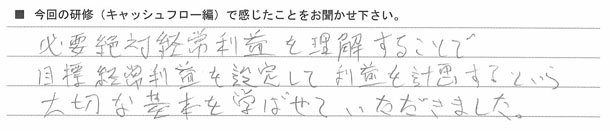 ■ 今回の研修(キャッシュフロー編)で感じたことをお聞かせ下さい。
必要絶対経常利益を理解することで
目標経常利益を設定して利益を計画するという
大切な基本を学ばせていただきました。